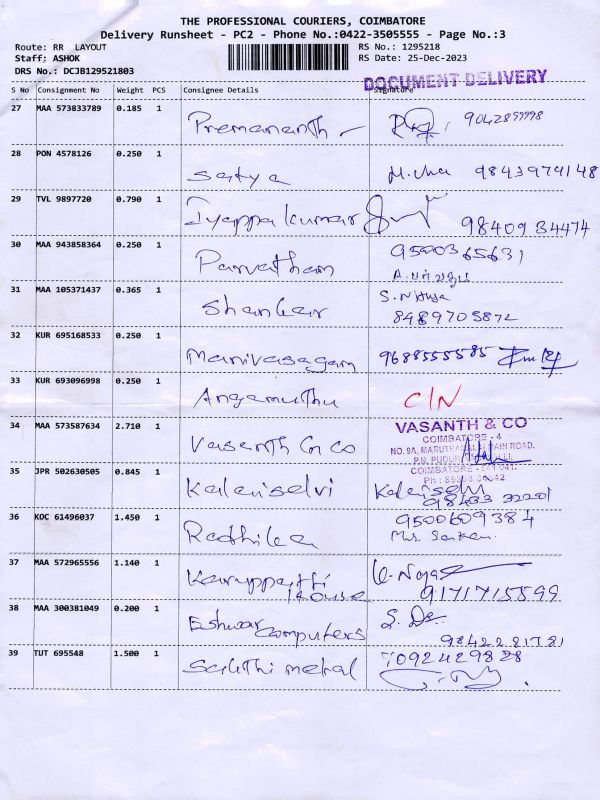 THE PROFESSIONAL COURIERS, COIMBATORE
Delivery Runsheet - PC2 - Phone No.:0422-3505555 - Page No.:3
Route: RR LAYOUT
Staff: ASHOK
DRS No.: DCJB129521803
RS No.: 1295218
RS Date: 25-Dec-2023
DOCUMENT DELIVERY
S No Consignment No Weight PCS Consignee Details Signature
27 MAA 573833789 0.185 1 Premananth
28 PON 4578126 0.250 1 Satya 9843974148
29 TVL 9897720 0.790 1 Iyappa kumar 9840934474
30 MAA 943858364 0.250 1 Parvatham 9500365631
31 MAA 105371437 0.365 1 Shankar
8489705872
32 KUR 695168533 0.250 1 Manivasagam 9688555585
33 KUR 693096998 0.250 1 Angamuthu C/N
34 MAA 573587634 2.710 1 Vasanth &n co
VASANTH & CO
COIMBATORE - 4
35 JPR 502630505 0.845 1 Kalaiselvi Kalaiselvi
36 KOC 61496037 1.450 1 Radhika 9500609384
37 MAA 572965556 1.140 1 Karuppatti
House 9171715899
38 MAA 300381049 0.200 1 Eshwar
Computers
9842281781
39 TUT 695548 1.500 1 Sakthi metal 7092429828